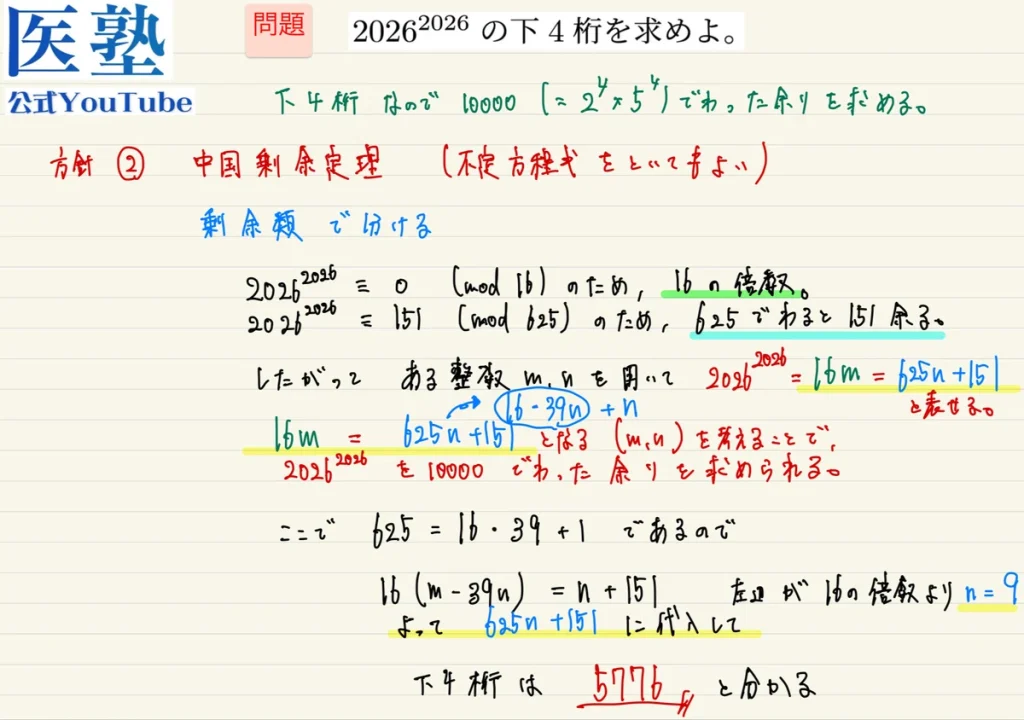 医塾
公式YouTube
問題
2026^2026 の下4桁を求めよ。
下4桁なので 10000 (= 2^4 × 5^4) でわった余りを求める。
方針② 中国剰余定理 (不定方程式をといてもよい)
剰余類で分ける
2026^2026 ≡ 0 (mod 16) のため, 16の倍数。
2026^2026 ≡ 151 (mod 625) のため, 625でわると151余る。
したがって ある整数 m, n を用いて 2026^2026 = 16m = 625n + 151
と表せる。
16・39n + n
16m = 625n + 151 となる (m, n) を考えることで,
2026^2026 を 10000 でわった余りを求められる。
ここで 625 = 16・39 + 1 であるので
16 (m - 39n) = n + 151 左辺が16の倍数より n = 9
よって 625n + 151 に代入して
下4桁は 5776 と分かる